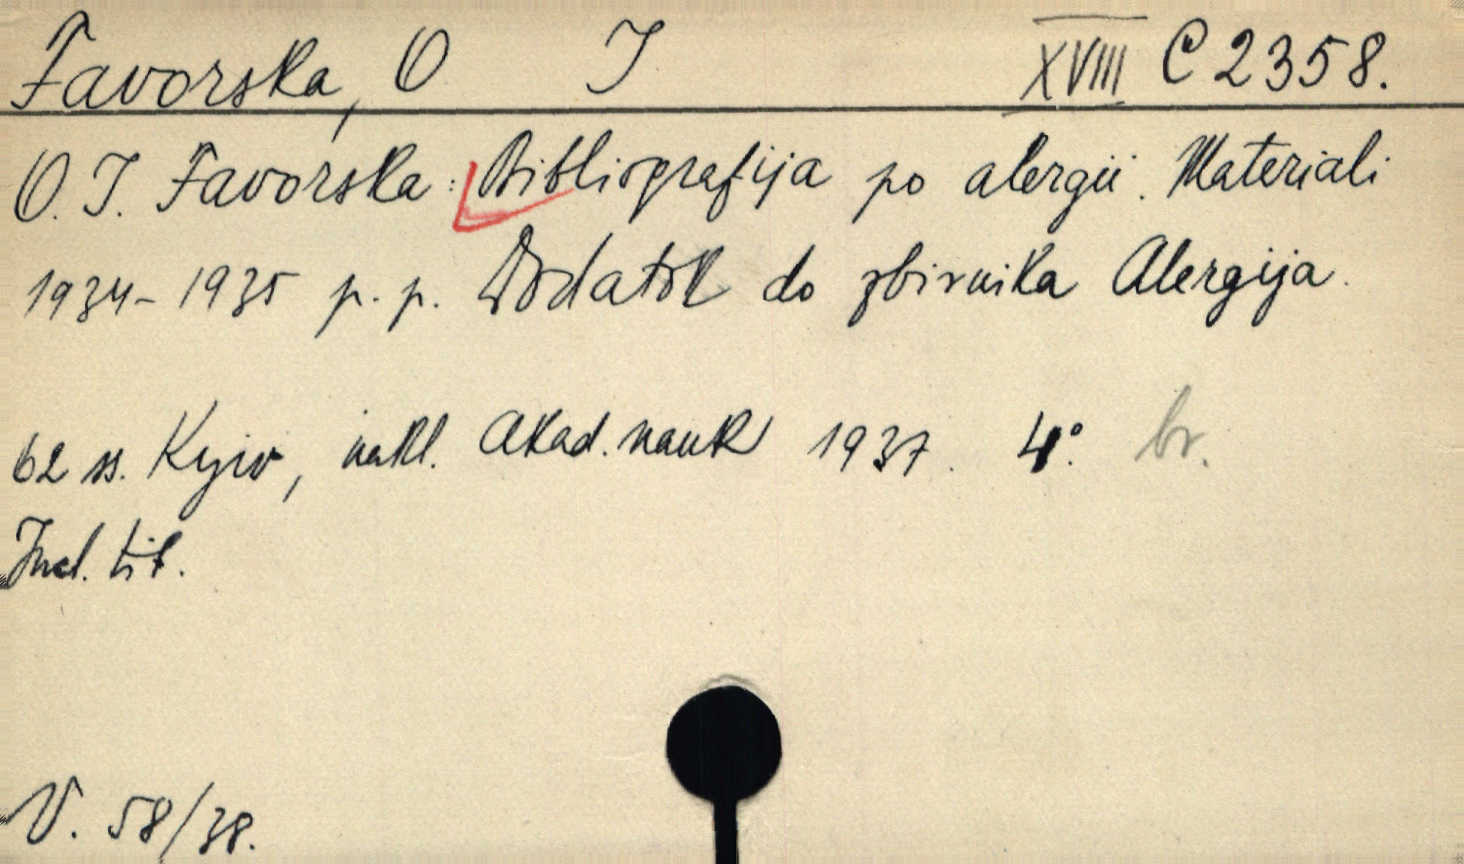 Favorska, O I XVIII C 2358.
O. I. Favorśka: Bibliografija po alergii. Materiali
1934-1935 p. p. Dodatok do zbirnika Alergija.
62 ss. Kyjiv, nakl. Akad. nauk 1937. 4° br.
Incl. tit.
V. 58/38.